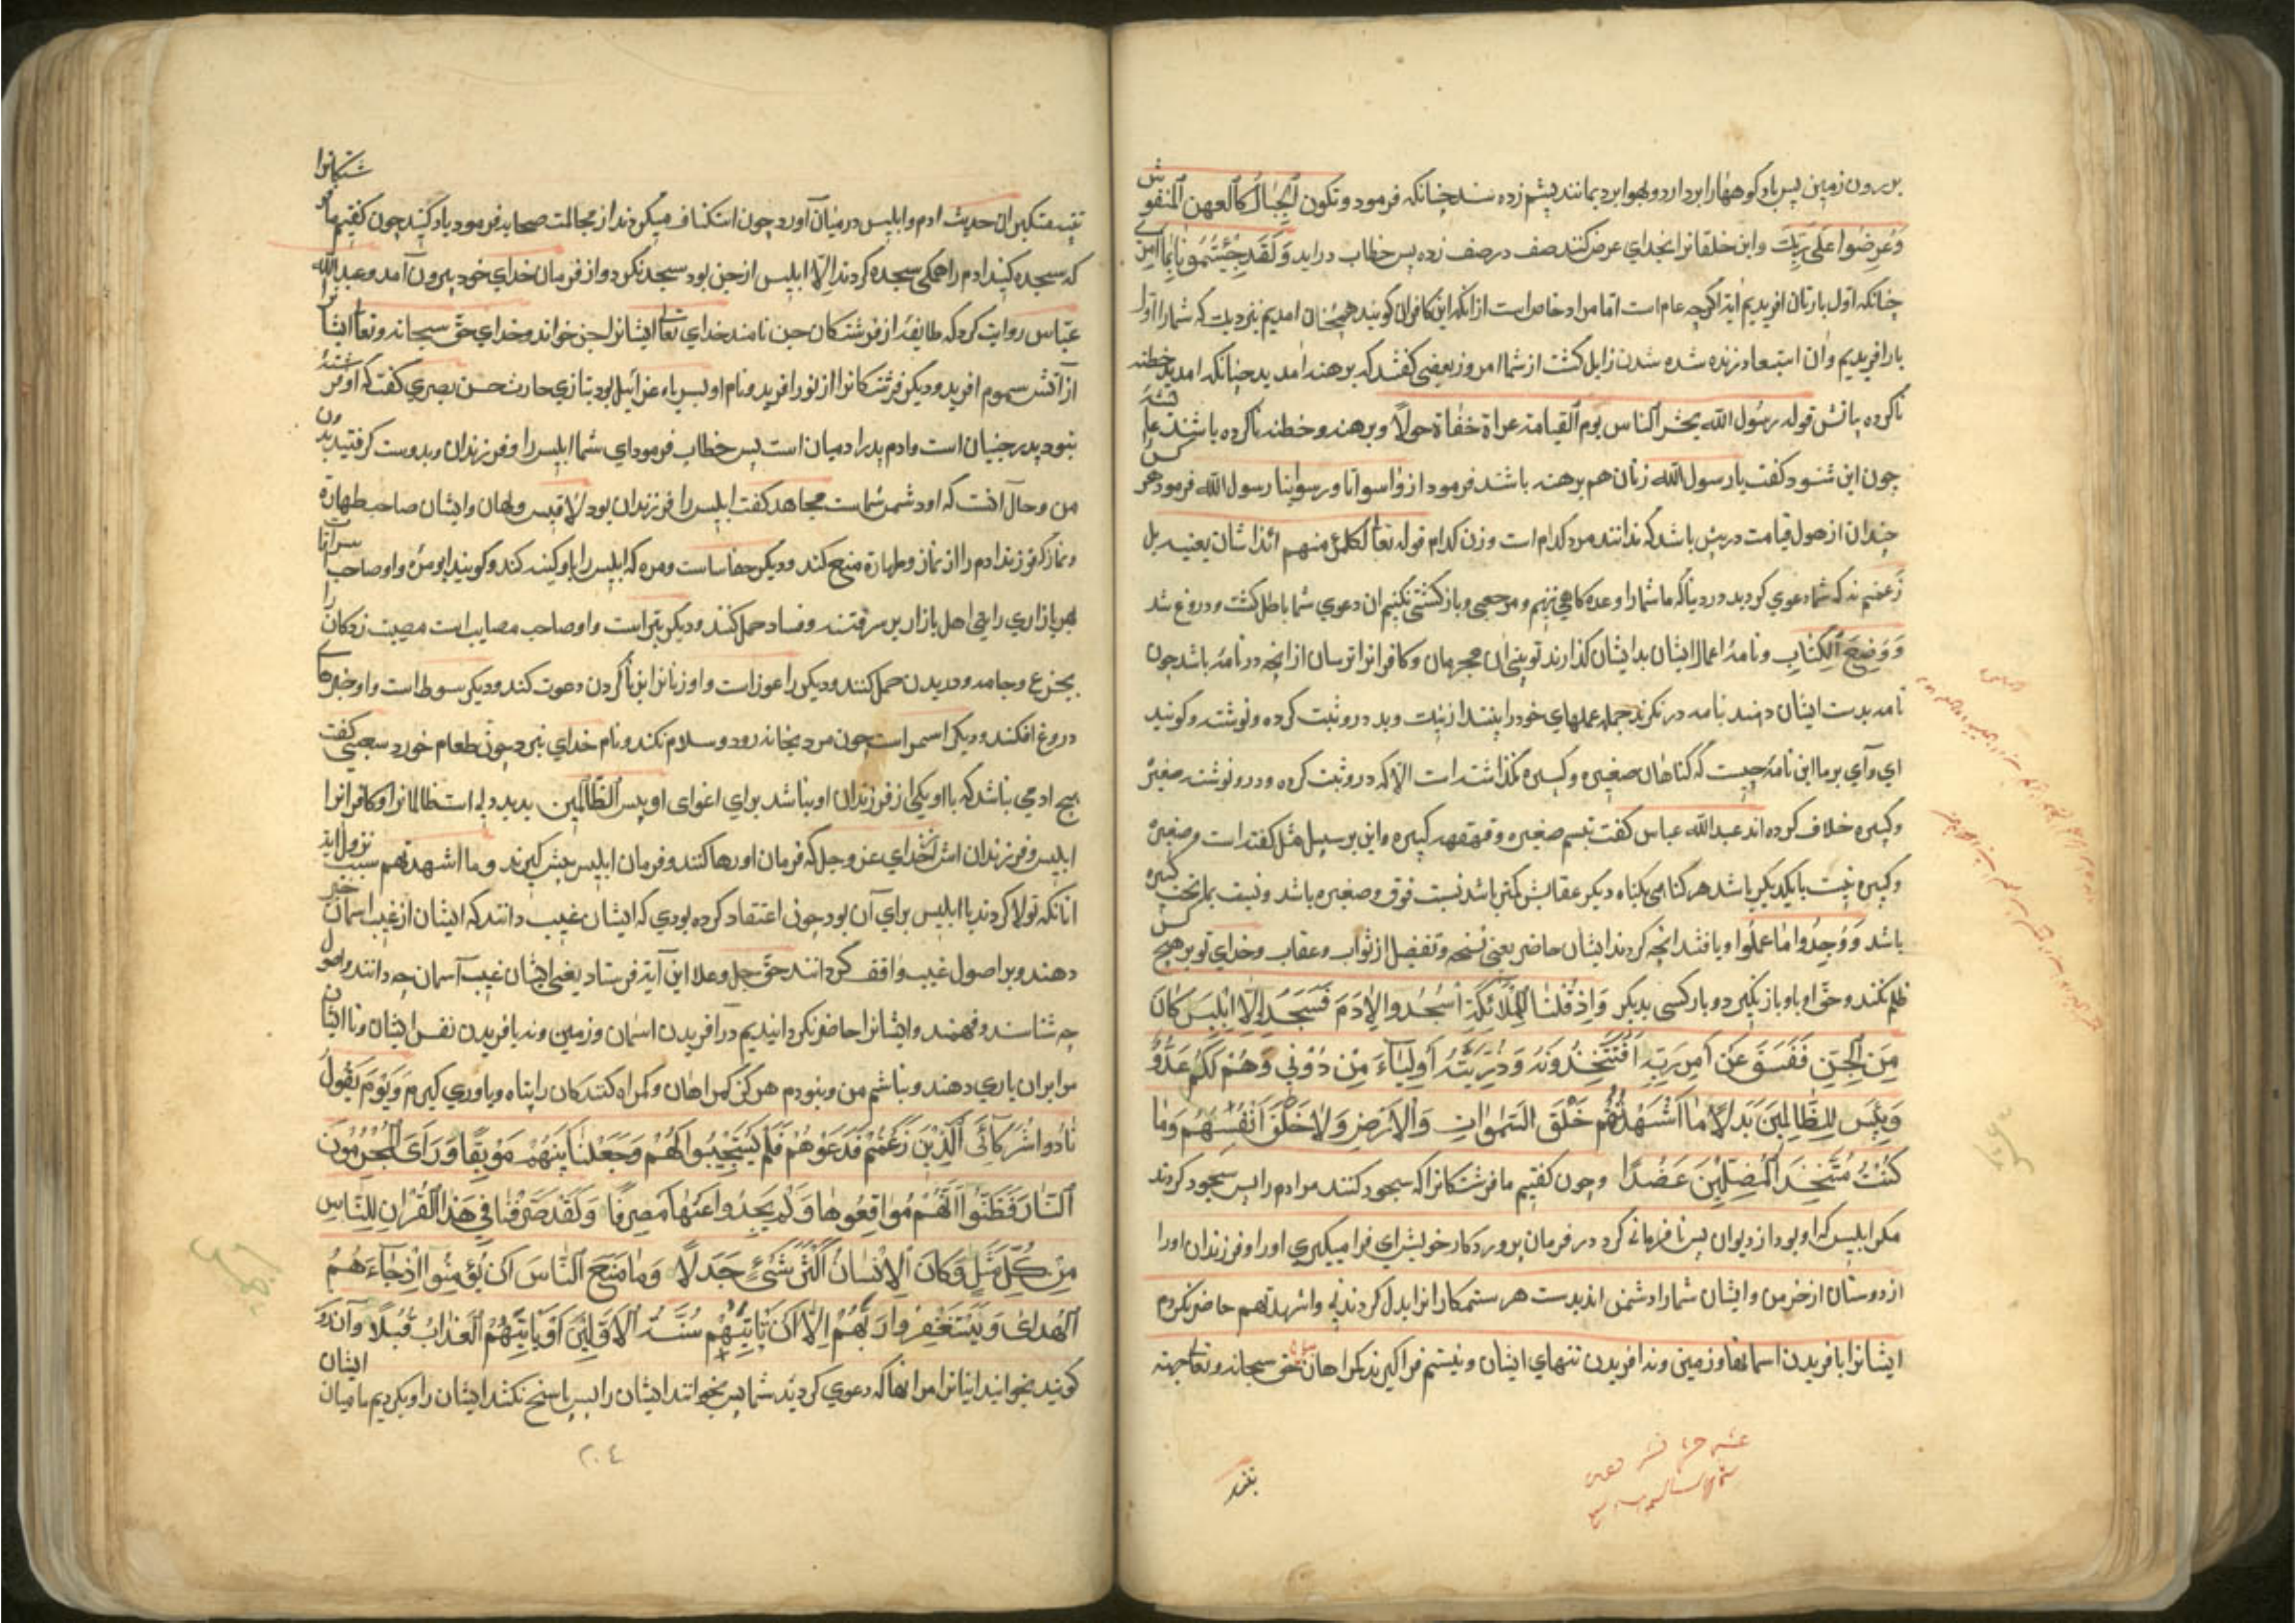 بر رون زمین پس باد کوهها را بردارد و بهوا برد بمانند پشم زده شد چنانکه فرمود و تکون الجبال کالعهن المنفوش
وَعُرِضُوا عَلٰی رَبِّكَ و این خلقانرا بخدای عرض کنند صف در صف زده پس خطاب دراید وَلَقَد جِئتُمُونا
چنانکه اول بارتان افریدیم ایة اگرچه عام است اما مراد خاص است از انکه این کافران گویند همچنان امدیم نیز دیت که شما را اول
بار افریدیم وان استبعاد زنده شده شدن زایل کشت از شما امروز بعضی کفتند که برهنه امدید چنانکه امدید خطنه
ناکرده قوله رسول الله یحشر الناس یوم القیامة عراة حفاة حولاً و برهنه و خطنه ناکرده باشند عایشه
چون این شنود کفت یا رسول الله زنان هم برهنه باشند فرمود از واسواتا ورسواینا رسول الله فرمود هرکس
چندان از هول قیامت در پیش باشد که ندانند مرد کدام است و زن کدام قوله تعالی لکل امرئ منهم یعنیه بل
زعمتم نه که شما دعوی کردید در دنیا که ما شما را وعده کاهی ننهیم و مرجعی و بازکشتی نکنیم ان دعوی شما باطل کشت و دروغ شد
وَوُضِعَ الکِتابِ و نامهٔ اعمال ایشان بدایشان کذارند تو بینی ان مجرمان و کافرانرا ترسان از انچه در نامه باشد چون
نامه بدست ایشان دهند نامه در نکرند جمله عملهای خود را بینند از نیك و بد درو ثبت کرده و نوشته و کویند
ای وآی بر ما این نامهٔ چیست که کناهان صغیره و کبیره نکذاشته است الا که درو ثبت کرده و درو نوشته صغیرهٔ
و کبیره خلاف کرده اند عبد الله عباس کفت تبسم صغیره و قهقهه کبیره و این بر سبیل مثل کفته است و صغیرهٔ
و کبیره نسبت با یکدیکر باشد هر کناهی بکناه دیکر عقابش کمتر باشد نسبت فوق و صغیره باشد و نسبت بما تحت کبیره
باشد وَوَجَدُوا مَا عَمِلُوا و یافتند انچه کردند ایشان حاضر یعنی نسخه و تفضیل از ثواب و عقاب و خدای تو بر هیچ کس
ظلم نکند و حق او با و باز نکیرد و بار کسی بدیکر وَاِذ قُلنَا لِلمَلائِکَةِ اسجُدُوا لِاٰدَمَ فَسَجَدُوا اِلّا اِبلیسَ کانَ
مِنَ الجِنِّ فَفَسَقَ عَن اَمرِ رَبِّهٖ اَفَتَتَّخِذُونَهُ وَذُرِّیَّتَهُ اَولِیٰآءَ مِن دُونی وَهُم لَکُم عَدُوٌّ
وَبِئسَ لِلظَّالِمینَ بَدَلاً مَا اَشهَدتُهُم خَلقَ السَّمٰواتِ وَالاَرضِ وَلاٰ خَلقَ اَنفُسِهِم وَمٰا
کُنتُ مُتَّخِذَ المُضِلّینَ عَضُدًا و چون کفتیم ما فرشتکانرا که سجود کنند مر ادم را پس سجود کردند
مکر ابلیس که او بود از دیوان پس نافرمانی کرد در فرمان پروردکار خویش ای فرا میکیری او را و فرزندان او را
از دوستان از خز من و ایشان شما را دشمنی اند بدست هر ستمکارانرا بدل کردنی و اشهدتهم حاضر نکردم
ایشانرا بافریدن اسمانها و زمین و نه افریدن تنهای ایشان و نیستم فرا کیرنده کمراهان حق سبحانه و تعالی جهة
تنبیه متکبران حدیث ادم و ابلیس در میان آورد چون استنکاف میکردند از مجالست صحابه فرمود یاد کنید چون کفتیم ما فرشتکانرا
که سجده کنید ادم را همکی سجده کردند الّا ابلیس از جن بود سجد نکرد و از فرمان خدای خود بیرون آمد و عبد الله
عباس روایت کرد که طایفهٔ از فرشتکان جن نامند خدای تعالی ایشانرا جن خواند و خدای حق سبحانه و تعالی ایشانرا
از آتش سموم افرید و دیکر فرشتکانرا از نور افرید و نام او عزازیل بود بتازی حارث حسن بصری کفت که او فرشتهٔ
نبود پدر جنیان است و ادم پدر ادمیان است پس خطاب فرمود ای شما ابلیس را و فرزندان و بدوست کرفتید بدون
من و حال آنست که او دشمن شماست مجاهد کفت ابلیس را فرزندان بود لاقیس و لهان و ایشان صاحب طهارة
و نماز که فرزند ادم را از نماز و طهارة منع کند و دیکر و مره که ابلیس را باو کنیه کند و کویند ابو مره و او صاحب
بازاری رایتی اهل بازار بر سرقت و فساد حمل کنند و دیکر بتر است و او صاحب مصایب است مصیبت زدکانرا
بجزع و جامه دریدن حمل کنند و دیکر را عوز است و او زنانرا زنا کردن دعوت کند و دیکر سوط است و او خبرهای
دروغ افکند و دیکر اسمر است چون مرد بخانه رود و سلام نکند و نام خدای نبرد چون طعام خورد بعضی کفت
هیچ ادمی نباشد که با او یکی از فرزندان او نباشد برای اغوای او بِئس الظالمین بدید است ظالمانرا و کافرانرا
ابلیس و فرزندان عز و جل که فرمان او رها کنند و فرمان ابلیس پیش کیرند و ما اشهدتهم سبب نزول ایة
انانکه تولا کردند با ابلیس برای آن بود چون اعتقاد کرده بودی که ایشان غیب دانند که ایشان از غیب اسمان خبر
دهند و بر اصول غیب واقف کردانند حق جل وعلا این آیة فرستاد یعنی ایشان غیب آسمان چه دانند و اصول
چه شناسند و فهمند و ایشانرا حاضر نکردانیدیم در افریدن اسمان و زمین و نه بافریدن نفس ایشان و تا ایشان
مرا بران یاری دهند و نباشم من و نبودم هرکز کمراهان و کمراه کنندکان را پناه و یاوری کیرم وَیَومَ یَقُولُ
نادُوا شُرَکآئِیَ الَّذینَ زَعَمتُم فَدَعَوهُم فَلَم یَستَجیبُوا لَهُم وَجَعَلنا بَینَهُم مَوبِقًا وَرَاَی المُجرِمُونَ
النّارَ فَظَنُّوا اَنَّهُم مُواقِعُوهٰا وَلَم یَجِدُوا عَنهٰا مَصرِفًا وَلَقَد صَرَّفنا فی هٰذَا القُرانِ لِلنّاسِ
مِن کُلِّ مَثَلٍ وَکانَ الاِنسانُ اَکثَرَ شَیءٍ جَدَلاً وَمٰا مَنَعَ النّاسَ اَن یُؤمِنُوا اِذ جاءَهُمُ
الهُدیٰ وَیَستَغفِرُوا رَبَّهُم اِلّا اَن تَأتِیَهُم سُنَّةُ الاَوَّلینَ اَو یَأتِیَهُمُ العَذابُ قُبُلاً وآن روز
کویند بخوانید انبازانرا انها که دعوی کردید شما پس بخوانند ایشان را پس پاسخ نکنند ایشان را و بکردیم ما میان ایشان
۲۰۴